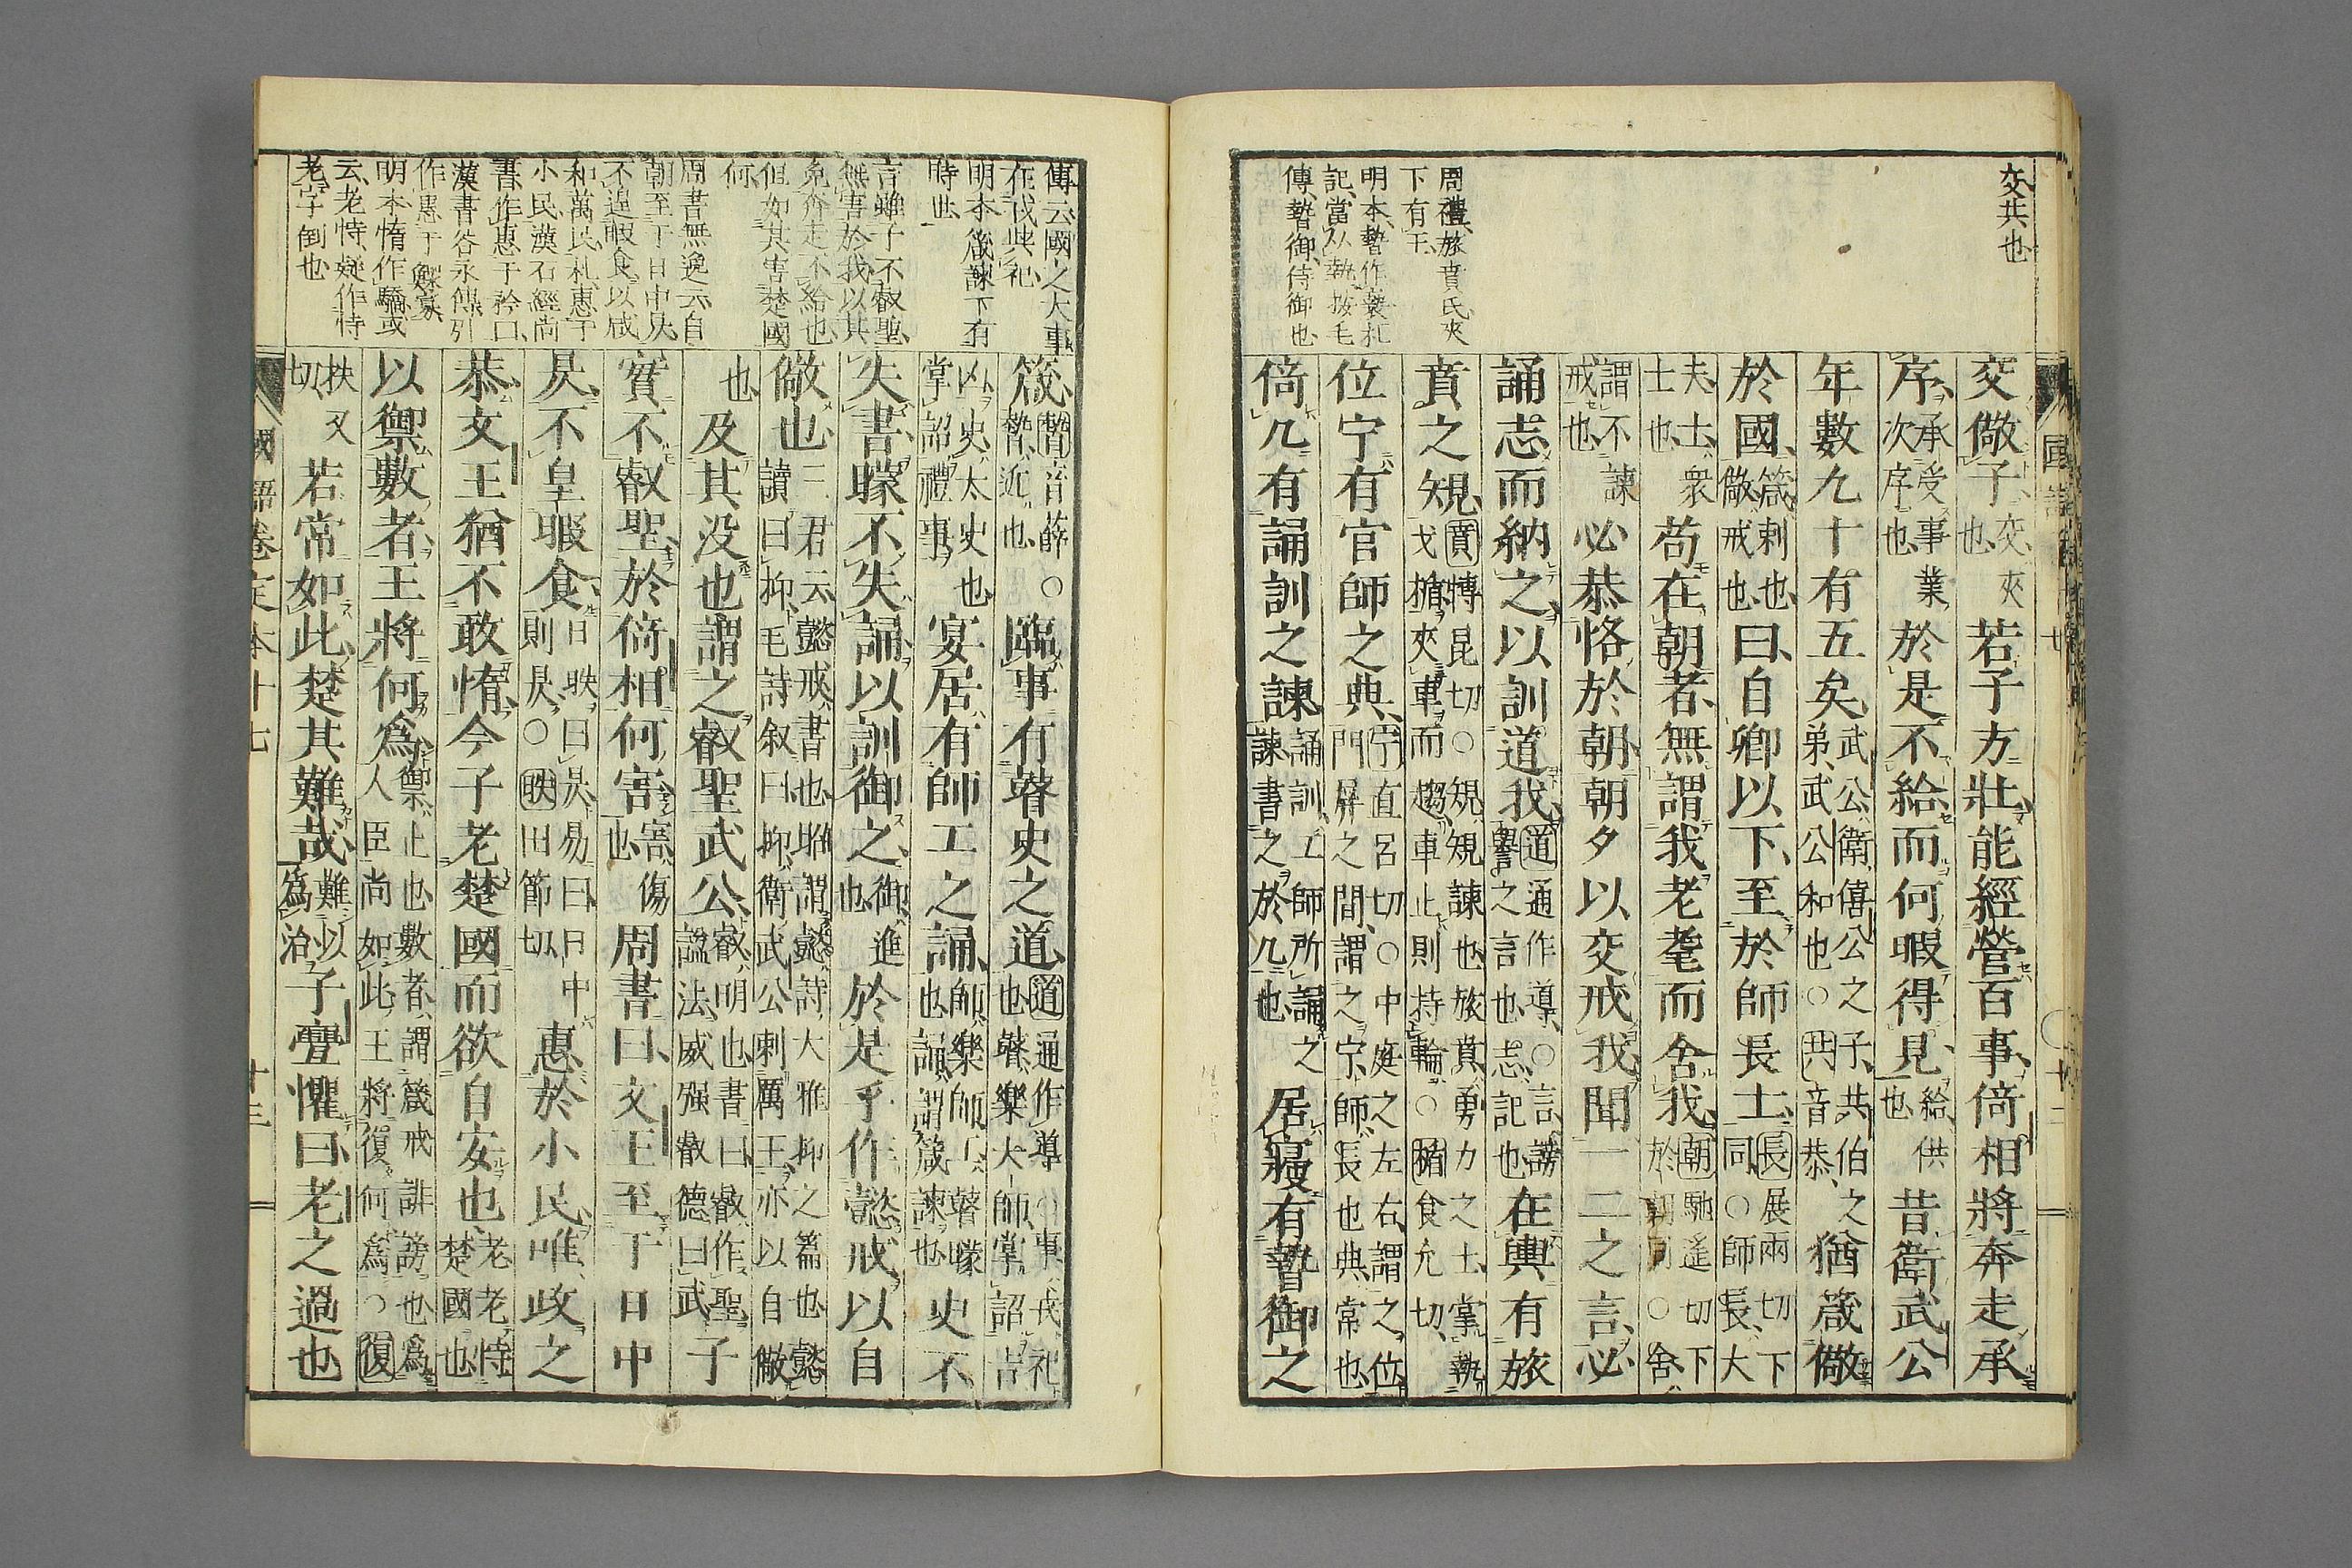 交共也
交儆子、交夾也、若子方壯、能經營百事、倚相將奔走承
序、承受事業次序也、於是不給、而何暇得見、給供也、昔衛武公
年數九十有五矣、武公、衛僖公之子、共伯之弟、武公和也○共音恭、猶箴儆
於國、箴刺也、儆戒也、曰、自卿以下、至於師長士、長展兩切下同○師長、大
夫、士、衆士也、苟在朝者、無謂我老耄而舍我、朝馳遙切下於朝同○舍、
謂不諫戒也、必恭恪於朝、朝夕以交戒我、聞一二之言、必
誦志而納之、以訓道我、道通作導、○言、謗譽之言也、志、記也、在輿有旅
賁之規、賁博昆切○規、規諫也、旅賁、勇力之士、掌執戈楯、夾車而趨、車止則持輪、○楯食允切、
位宁有官師之典、宁直呂切○中庭之左右、謂之位、門屏之間、謂之宁、師、長也、典、常也、
倚几有誦訓之諫、誦訓、工師所誦之諫、書之於几也、居寢有暬御之
周禮、旅賁氏、夾
下有王、
明本、暬作褻、札
記、當从執、按毛
傳、暬御、侍御也、
箴、暬音薛○暬、近也、臨事有瞽史之道、道通作導○事、戎祀也、瞽、樂大師、掌詔吉
凶、史、太史也、掌詔禮事、宴居有師工之誦、師、樂師、工、瞽矇也、誦、謂箴諫也、史不
失書、矇不失誦、以訓御之、御、進也、於是乎作懿戒、以自
儆也、三君云、懿戒、書也、昭謂、懿、詩大雅抑之篇也、懿讀曰抑、毛詩叙曰、抑、衛武公刺厲王、亦以自儆
也、及其没也、謂之叡聖武公、叡、明也、書曰、叡作聖、謚法、威强叡德曰武、子
實不叡聖、於倚相何害、害、傷也、周書曰、文王至于日中
昃、不皇暇食、日昳曰昃、易曰、日中則昃、○昳田節切、惠於小民、唯政之
恭、文王猶不敢惰、今子老楚國而欲自安也、老、老恃楚國也、
以禦數者、王將何爲、禦、止也、數者、謂箴戒誹謗也、爲人臣尚如此、王將復何爲○復
扶又切、若常如此、楚其難哉、難以爲治、子亹懼曰、老之過也
傳云、國之大事
在戎與祀
明本、箴諫下有
時世、
言雖子不叡聖、
無害於我、以其
免奔走不給也、
但如其害楚國
何、
周書無逸云、自
朝至于日中昃、
不遑暇食、以咸
和萬民、札、惠于
小民、漢石經尚
書、作惠于矜口、
漢書谷永傳、引
作惠于鰥寡、
明本、惰作驕、或
云、老恃、疑作恃
老、字倒也
國語卷之本十七
十三